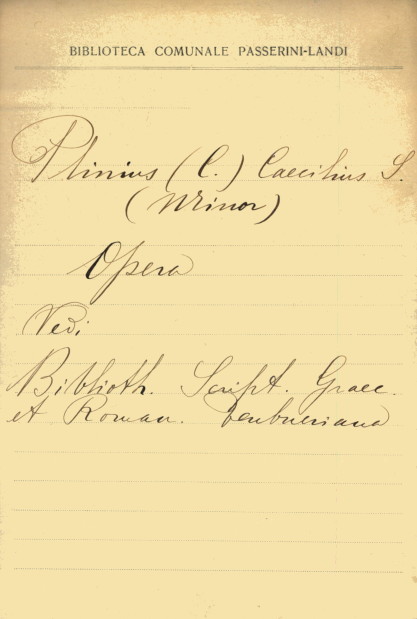 BIBLIOTECA COMUNALE PASSERINI-LANDI
Plinius (C.) Caecilius S.
(Minor)
Opera
Vedi
Biblioth. Script. Graec.
et Roman. Teubneriana